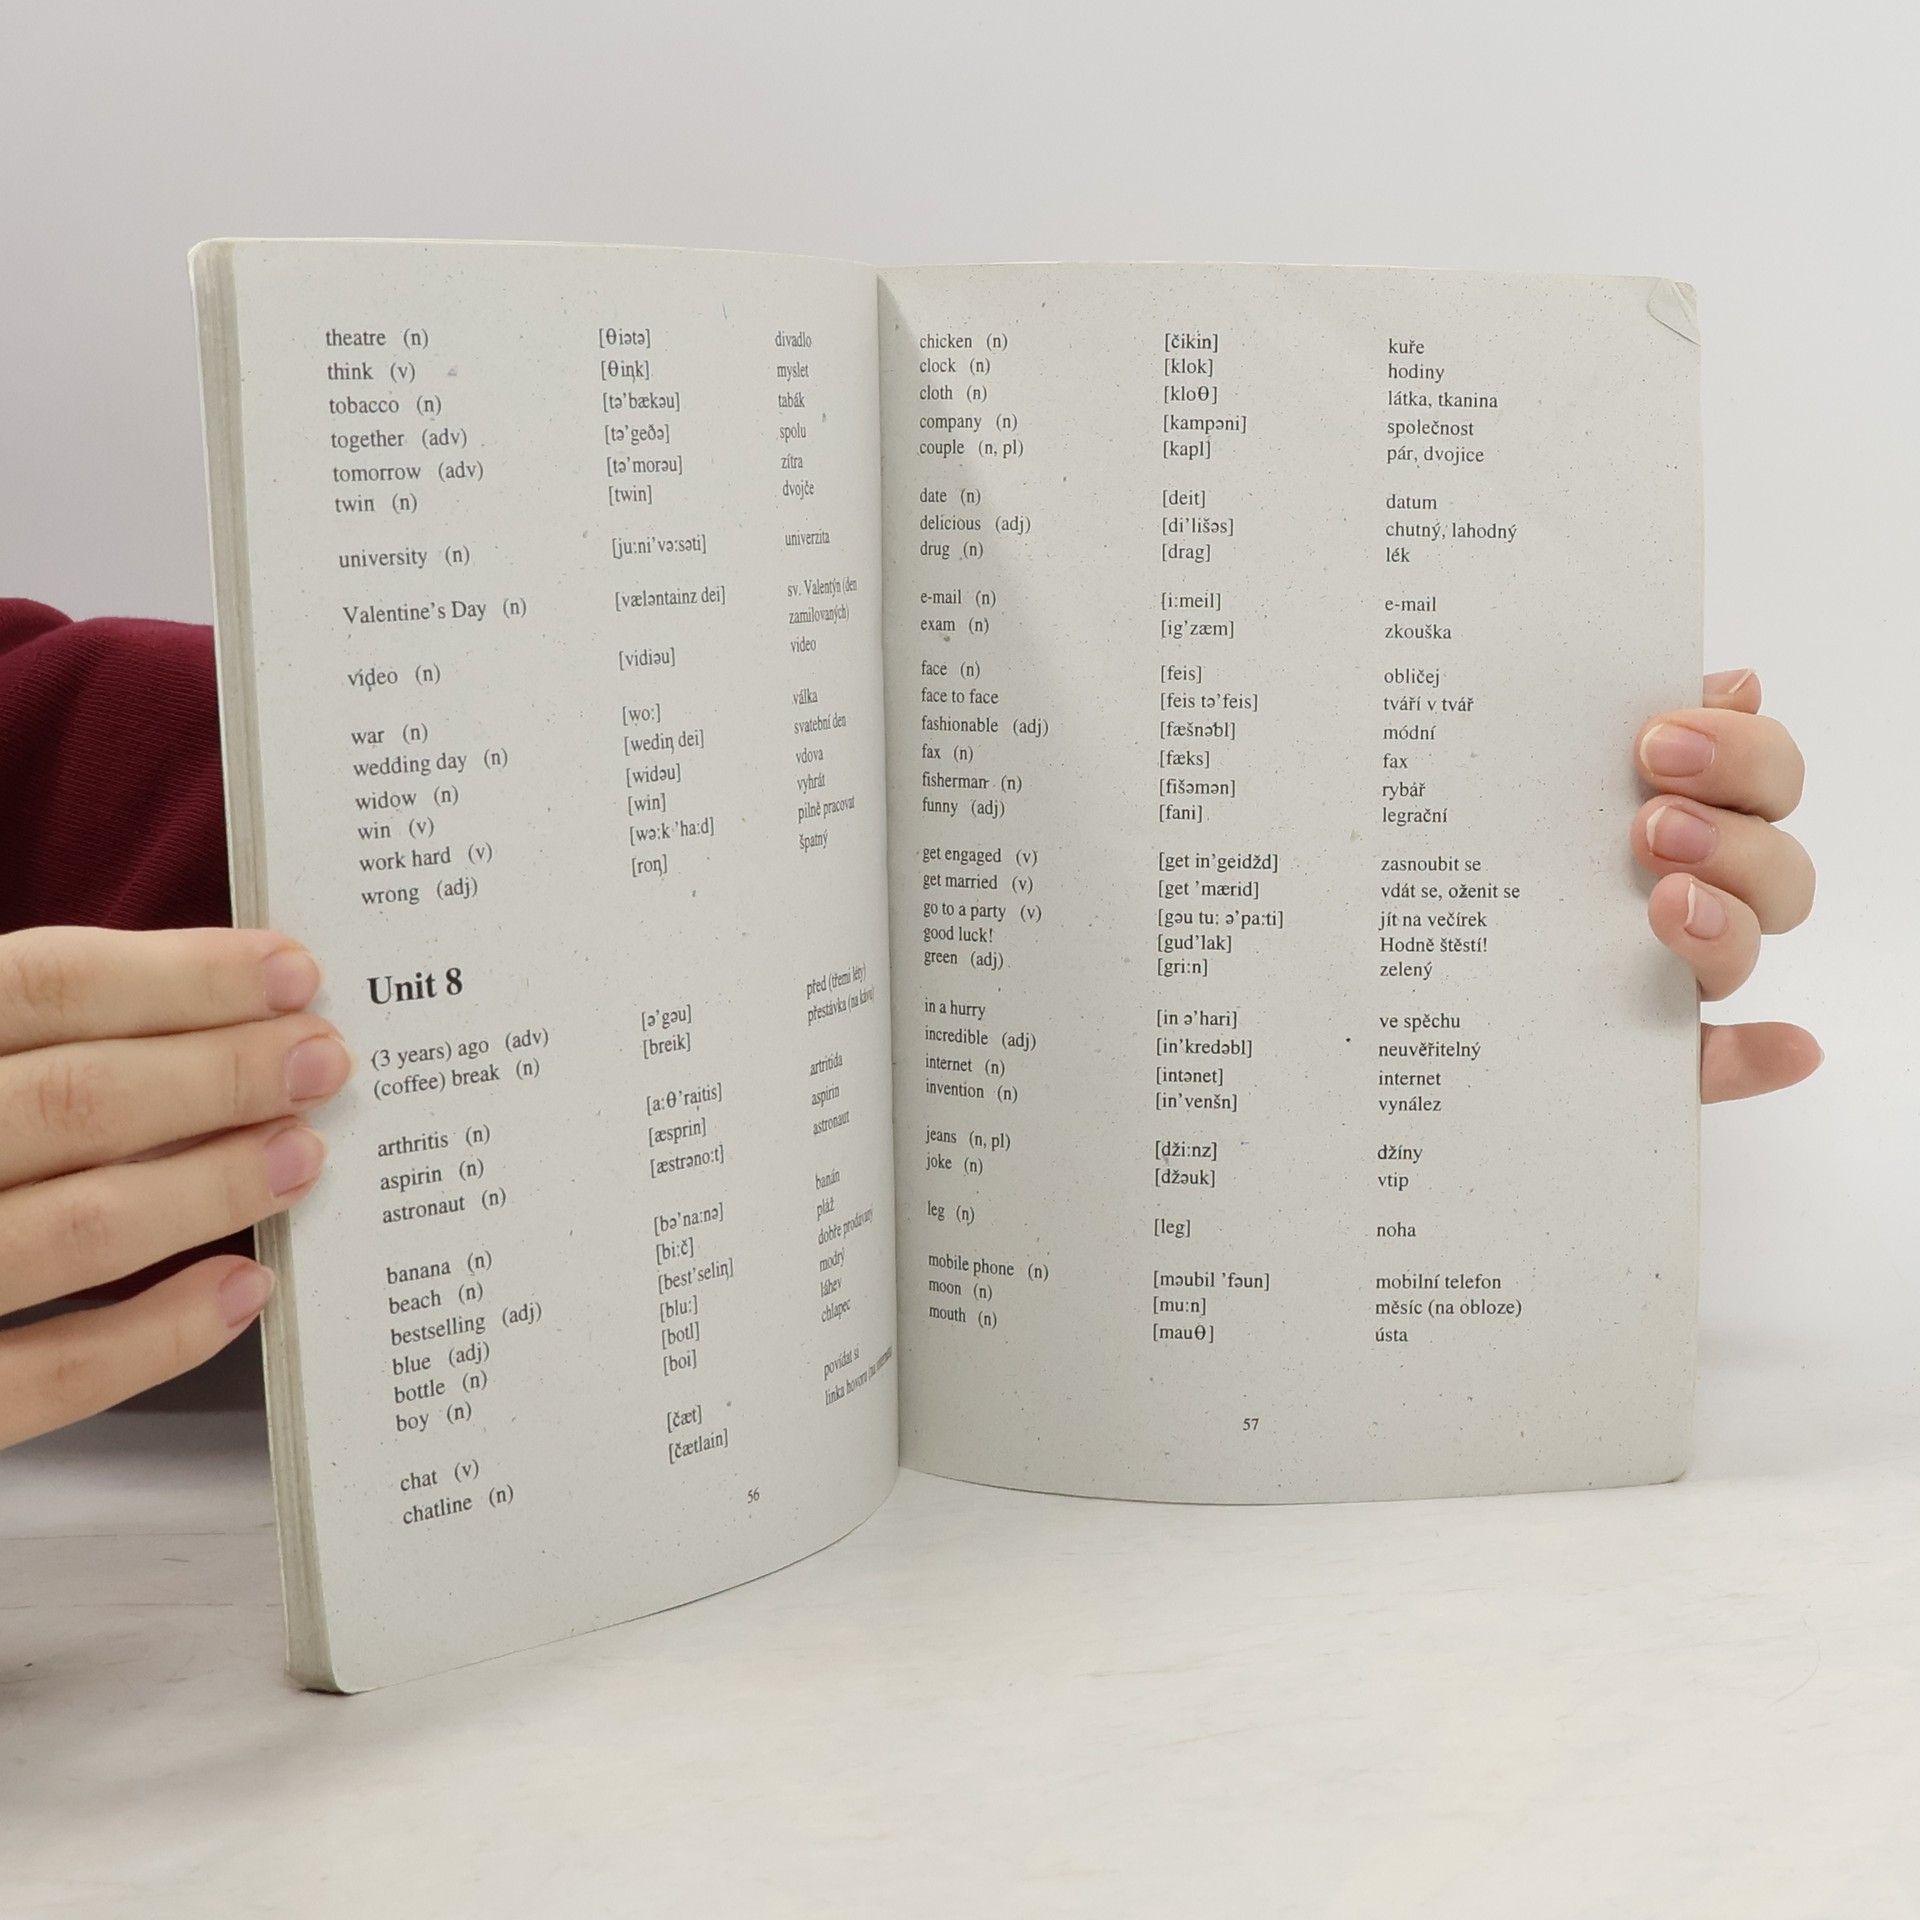 theatre (n) [θiətə] divadlo
think (v) [θiŋk] myslet
tobacco (n) [tə’bækəu] tabák
together (adv) [tə’geðə] spolu
tomorrow (adv) [tə’morəu] zítra
twin (n) [twin] dvojče
university (n) [ju:ni’və:səti] univerzita
Valentine’s Day (n) [væləntainz dei] sv. Valentýn (den
zamilovaných)
video (n) [vidiəu] video
war (n) [wo:] válka
wedding day (n) [wediŋ dei] svatební den
widow (n) [widəu] vdova
win (v) [win] vyhrát
work hard (v) [wə:k ’ha:d] pilně pracovat
wrong (adj) [roŋ] špatný
Unit 8
(3 years) ago (adv) [ə’gəu] před (třemi léty)
(coffee) break (n) [breik] přestávka (na kávu)
arthritis (n) [a:θ’raitis] artritida
aspirin (n) [æsprin] aspirin
astronaut (n) [æstrəno:t] astronaut
banana (n) [bə’na:nə] banán
beach (n) [bi:č] pláž
bestselling (adj) [best’seliŋ] dobře prodávaný
blue (adj) [blu:] modrý
bottle (n) [botl] láhev
boy (n) [boi] chlapec
chat (v) [čæt] povídat si
chatline (n) [čætlain] linka hovorů (na
56
chicken (n) [čikin] kuře
clock (n) [klok] hodiny
cloth (n) [kloθ] látka, tkanina
company (n) [kampəni] společnost
couple (n, pl) [kapl] pár, dvojice
date (n) [deit] datum
delicious (adj) [di’lišəs] chutný, lahodný
drug (n) [drag] lék
e-mail (n) [i:meil] e-mail
exam (n) [ig’zæm] zkouška
face (n) [feis] obličej
face to face [feis tə’feis] tváří v tvář
fashionable (adj) [fæšnəbl] módní
fax (n) [fæks] fax
fisherman (n) [fišəmən] rybář
funny (adj) [fani] legrační
get engaged (v) [get in’geidžd] zasnoubit se
get married (v) [get ’mærid] vdát se, oženit se
go to a party (v) [gəu tu: ə’pa:ti] jít na večírek
good luck! [gud’lak] Hodně štěstí!
green (adj) [gri:n] zelený
in a hurry [in ə’hari] ve spěchu
incredible (adj) [in’kredəbl] neuvěřitelný
internet (n) [intənet] internet
invention (n) [in’venšn] vynález
jeans (n, pl) [dži:nz] džíny
joke (n) [džəuk] vtip
leg (n) [leg] noha
mobile phone (n) [məubil ’fəun] mobilní telefon
moon (n) [mu:n] měsíc (na obloze)
mouth (n) [mauθ] ústa
57